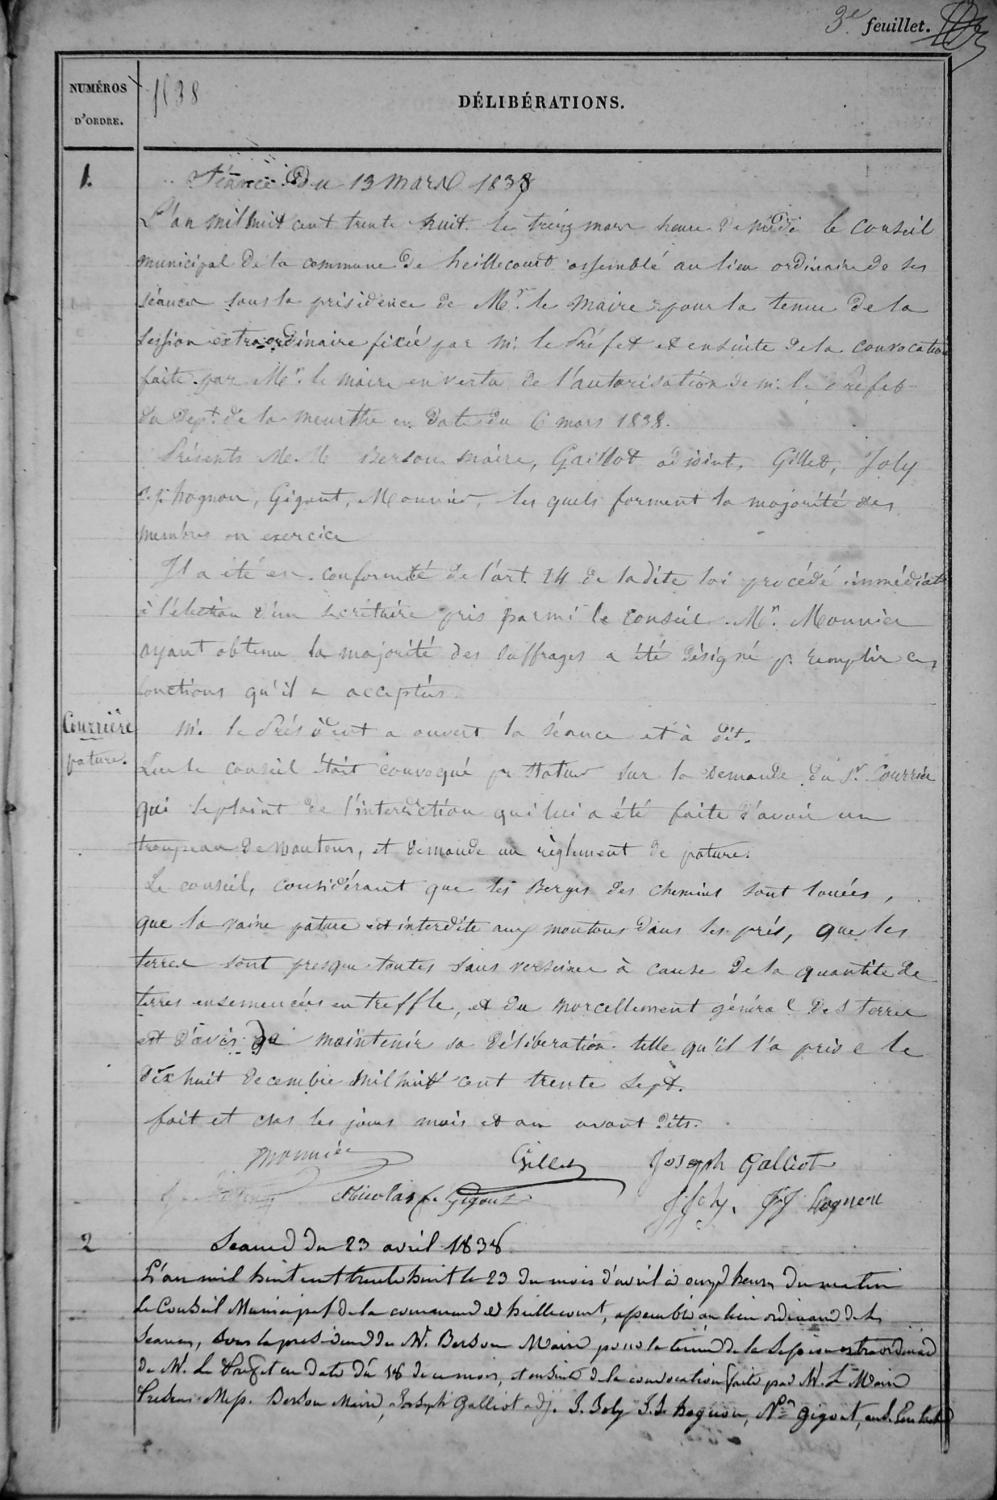 3e feuillet.
NUMÉROS D'ORDRE.
1838
DÉLIBÉRATIONS.
1.
Séance Du 13 mars 1838
L'an mil huit cent trente huit le treize mars heure de midi le conseil
municipal de la commune de heillecourt assemblé au lieu ordinaire de ses
séances sous la présidence de Mr. le maire pour la tenue de la
session extraordinaire fixée par mr. le Préfet et ensuite de la convocation
faite par Mr. le maire en vertu de l'autorisation de m. le Préfet
du Dept. de la meurthe en date du 6 mars 1838.
Présents M. M Berson maire, Galliot adjoint, Gillet, Joly
hognon, Gigout, Monnier, les quels forment la majorité des
membres en exercice
Il a été en conformité de l'art. 24 de ladite loi procédé immédiat
à l'élection d'un secrétaire pris parmi le conseil. Mr. Monnier
ayant obtenu la majorité des suffrages a été désigné pr. remplir ces
fonctions qu'il a acceptées.
Courrière
pature.
Mr. le Président a ouvert la séance et à dit.
Que le conseil était convoqué pr statuer sur la demande du Sr. Courrier
qui se plaint de l'interdiction qui lui a été faite d'avoir un
troupeau de moutons, et demande un règlement de pature.
Le conseil, considérant que les Berges des chemins sont louées,
que la vaine pature est interdite aux moutons dans les prés, que les
terres sont presque toutes sans versaine à cause de la quantité de
terres ensemencées en treffle, et du morcellement général des terres
est d'avis de maintenir sa délibération telle qu'il l'a prise le
dix huit decembre mil huit cent trente sept.
fait et clos les jours mois et an avant dits.
Monnier Gillet Joseph Galliot
Nicolas f. Gigout J Joly. J J hognon
2
Séance du 23 avril 1838
L'an mil huit cent trente huit le 23 du mois d'avril à onze heures du matin
Le Conseil Municipal de la commune d'heillecourt, assemblé au lieu ordinaire de ses
Séances, sous la présidence de Mr. Berson Maire pour la tenue de la Session extraordinaire
de Mr. Le Préfet en date du 18 de ce mois, et ensuite de la convocation faite par Mr. Le Maire
Présens Mess. Berson Maire, Joseph Galliot adj. J. Joly J.J. hognon, Nas gigout,